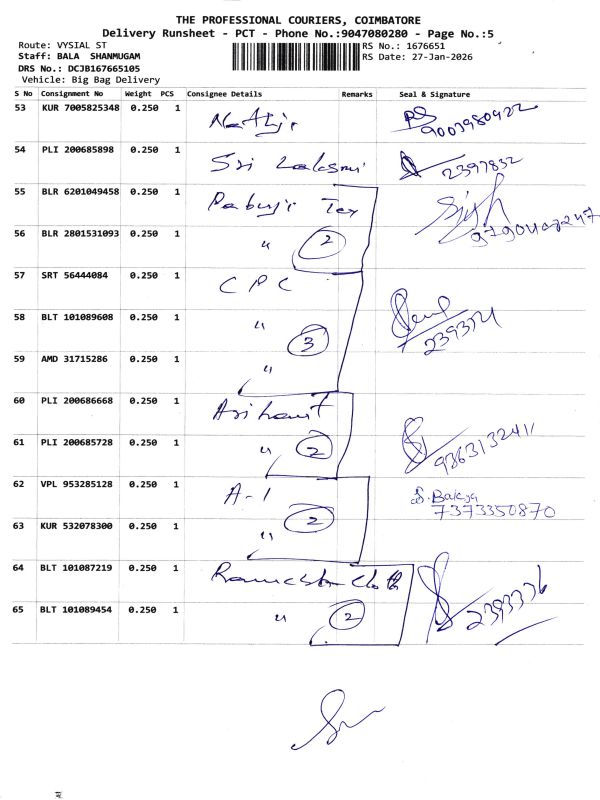 THE PROFESSIONAL COURIERS, COIMBATORE
Delivery Runsheet - PCT - Phone No.:9047080280 - Page No.:5
Route: VYSIAL ST
Staff: BALA SHANMUGAM
DRS No.: DCJB167665105
Vehicle: Big Bag Delivery
RS No.: 1676651
RS Date: 27-Jan-2026
S No Consignment No Weight PCS Consignee Details Remarks Seal & Signature
53 KUR 7005825348 0.250 1
9003980922
54 PLI 200685898 0.250 1 Sri Laksmi 2397832
55 BLR 6201049458 0.250 1 Tex
56 BLR 2801531093 0.250 1 " 2
57 SRT 56444084 0.250 1 CPC
58 BLT 101089608 0.250 1 " 3
59 AMD 31715286 0.250 1 "
60 PLI 200686668 0.250 1 Arihant
61 PLI 200685728 0.250 1 " 2 9363132411
62 VPL 953285128 0.250 1 A-1 S. Bakya
7373350870
63 KUR 532078300 0.250 1 " 2
64 BLT 101087219 0.250 1 Cloth
65 BLT 101089454 0.250 1 " 2 2393336